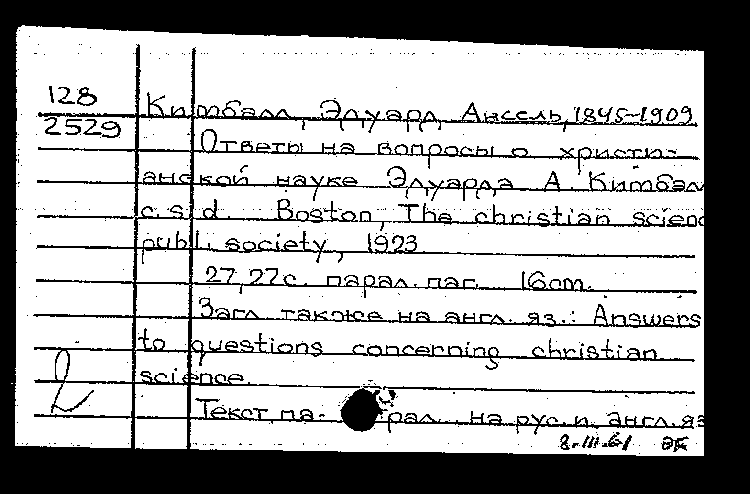 128
2529
Кимбалл, Эдуард Ансель, 1845-1909
Ответы на вопросы о христи-
анской науке Эдуарда А. Кимбал
c.s.d. Boston, The christian scienc
publ. society, 1923
27,27с. парал. паг. 16cm.
Загл. также на англ. яз.: Answers
to questions concerning christian
science.
Текст па- рал. на рус. и англ. яз
2
8.III.61